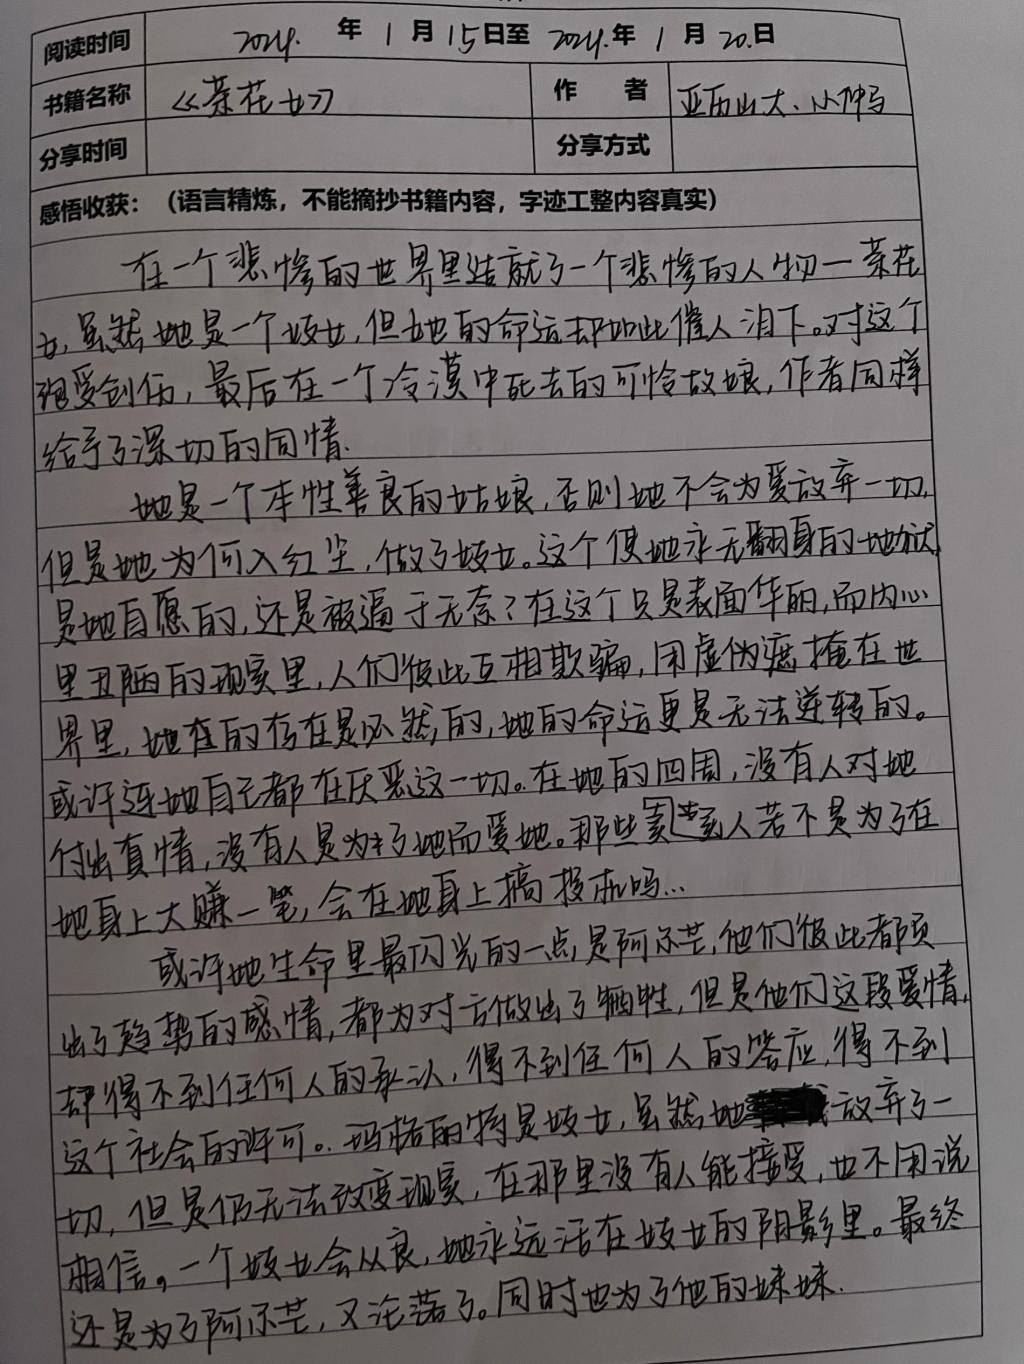 阅读时间 2024.年1月15日至2024.年1月20.日
书籍名称 《茶花女》 作 者 亚历山大、小仲马
分享时间 分享方式
感悟收获：（语言精炼，不能摘抄书籍内容，字迹工整内容真实）
在一个悲惨的世界里造就了一个悲惨的人物—茶花
女,虽然她是一个妓女,但她的命运却如此催人泪下。对这个
饱受创伤,最后在一个冷漠中死去的可怜故娘,作者同样
给予了深切的同情.
她是一个本性善良的姑娘,否则她不会为爱放弃一切,
但是她为何入红尘,做了妓女。这个使她永无翻身的地狱
是她自愿的,还是被逼于无奈?在这个只是表面华丽,而内心
里丑陋的现实里,人们彼此互相欺骗,用虚伪遮掩在世
界里,她在的存在是必然的,她的命运更是无法逆转的。
或许连她自己都在厌恶这一切。在她的四周,没有人对她
付出真情,没有人是为了她而爱她。那些人若不是为了在
她身上大赚一笔,会在她身上搞投机吗...
或许她生命里最闪光的一点,是阿尔芒,他们彼此都倾
出了趋势的感情,都为对方做出了牺牲,但是他们这段爱情,
却得不到任何人的承认,得不到任何人的答应,得不到
这个社会的许可。玛格丽特是妓女,虽然她放弃了一
切,但是仍无法改变现实,在那里没有人能接受,也不用说
相信。一个妓女会从良,她永远活在妓女的阴影里。最终
还是为了阿尔芒,又沦落了。同时也为了他的妹妹.